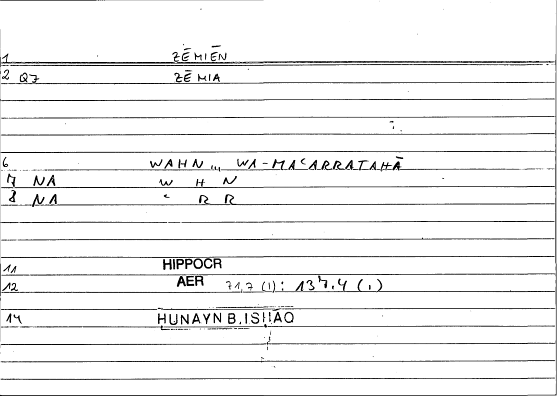 1 ZĒMIĒN
2 Q7 ZĒMIA
6 WAHN ,,, WA-MAʿARRATAHĀ
7 NA W H N
8 NA ʿ R R
11 HIPPOCR
12 AER 71,7 (1): 137,4 (1)
14 HUNAYN B.ISḤAQ